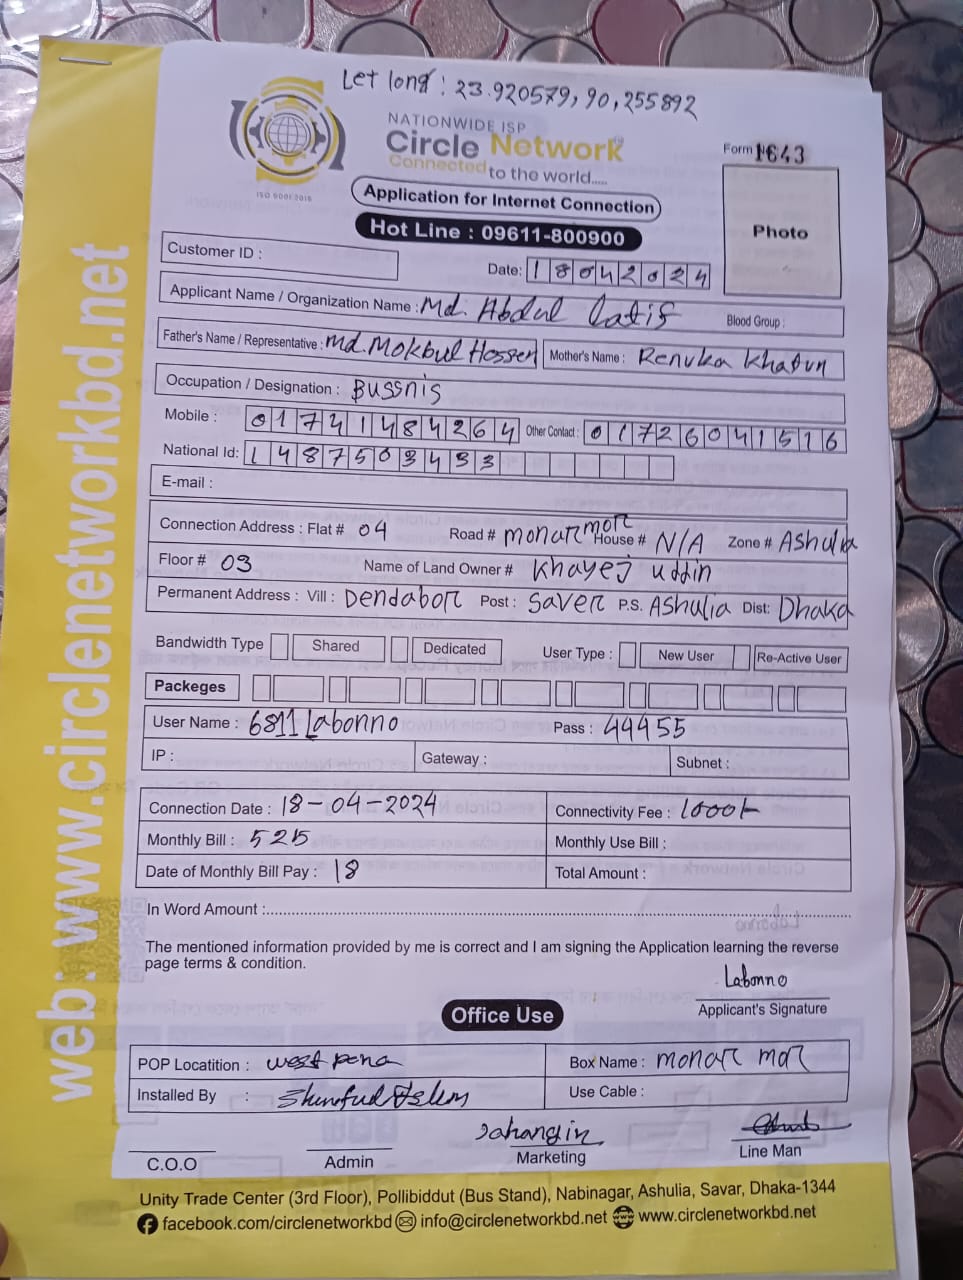 Let long : 23.920579, 90,255892
NATIONWIDE ISP
Circle Network
Connected to the world.....
ISO 9001:2015
Form 1643
Application for Internet Connection
Hot Line : 09611-800900
Photo
Customer ID :
Date: 18042024
Applicant Name / Organization Name : Md. Abdul Latif Blood Group :
Father's Name / Representative : md. Mokbul Hossen Mother's Name : Renuka Khatun
Occupation / Designation : Bussnis
Mobile : 01741484264 Other Contact : 01726041516
National Id: 1487503433
E-mail :
Connection Address : Flat # 04 Road # monar mor House # N/A Zone # Ashulia
Floor # 03 Name of Land Owner # Khayej uddin
Permanent Address : Vill : Dendabor Post : Saver P.S. Ashulia Dist: Dhaka
Bandwidth Type Shared Dedicated User Type : New User Re-Active User
Packeges
User Name : 6811 Labonno Pass : 44455
IP : Gateway : Subnet :
Connection Date : 18-04-2024 Connectivity Fee : 1000/-
Monthly Bill : 525 Monthly Use Bill :
Date of Monthly Bill Pay : 18 Total Amount :
In Word Amount :
The mentioned information provided by me is correct and I am signing the Application learning the reverse
page terms & condition.
Labonno
Applicant's Signature
Office Use
POP Locatition : west pena Box Name : monar mor
Installed By : Use Cable :
Jahangir
C.O.O Admin Marketing Line Man
Unity Trade Center (3rd Floor), Pollibiddut (Bus Stand), Nabinagar, Ashulia, Savar, Dhaka-1344
facebook.com/circlenetworkbd info@circlenetworkbd.net www.circlenetworkbd.net
web: www.circlenetworkbd.net